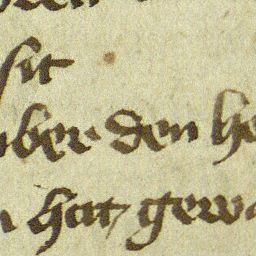 sit
uber den he
hat gewa